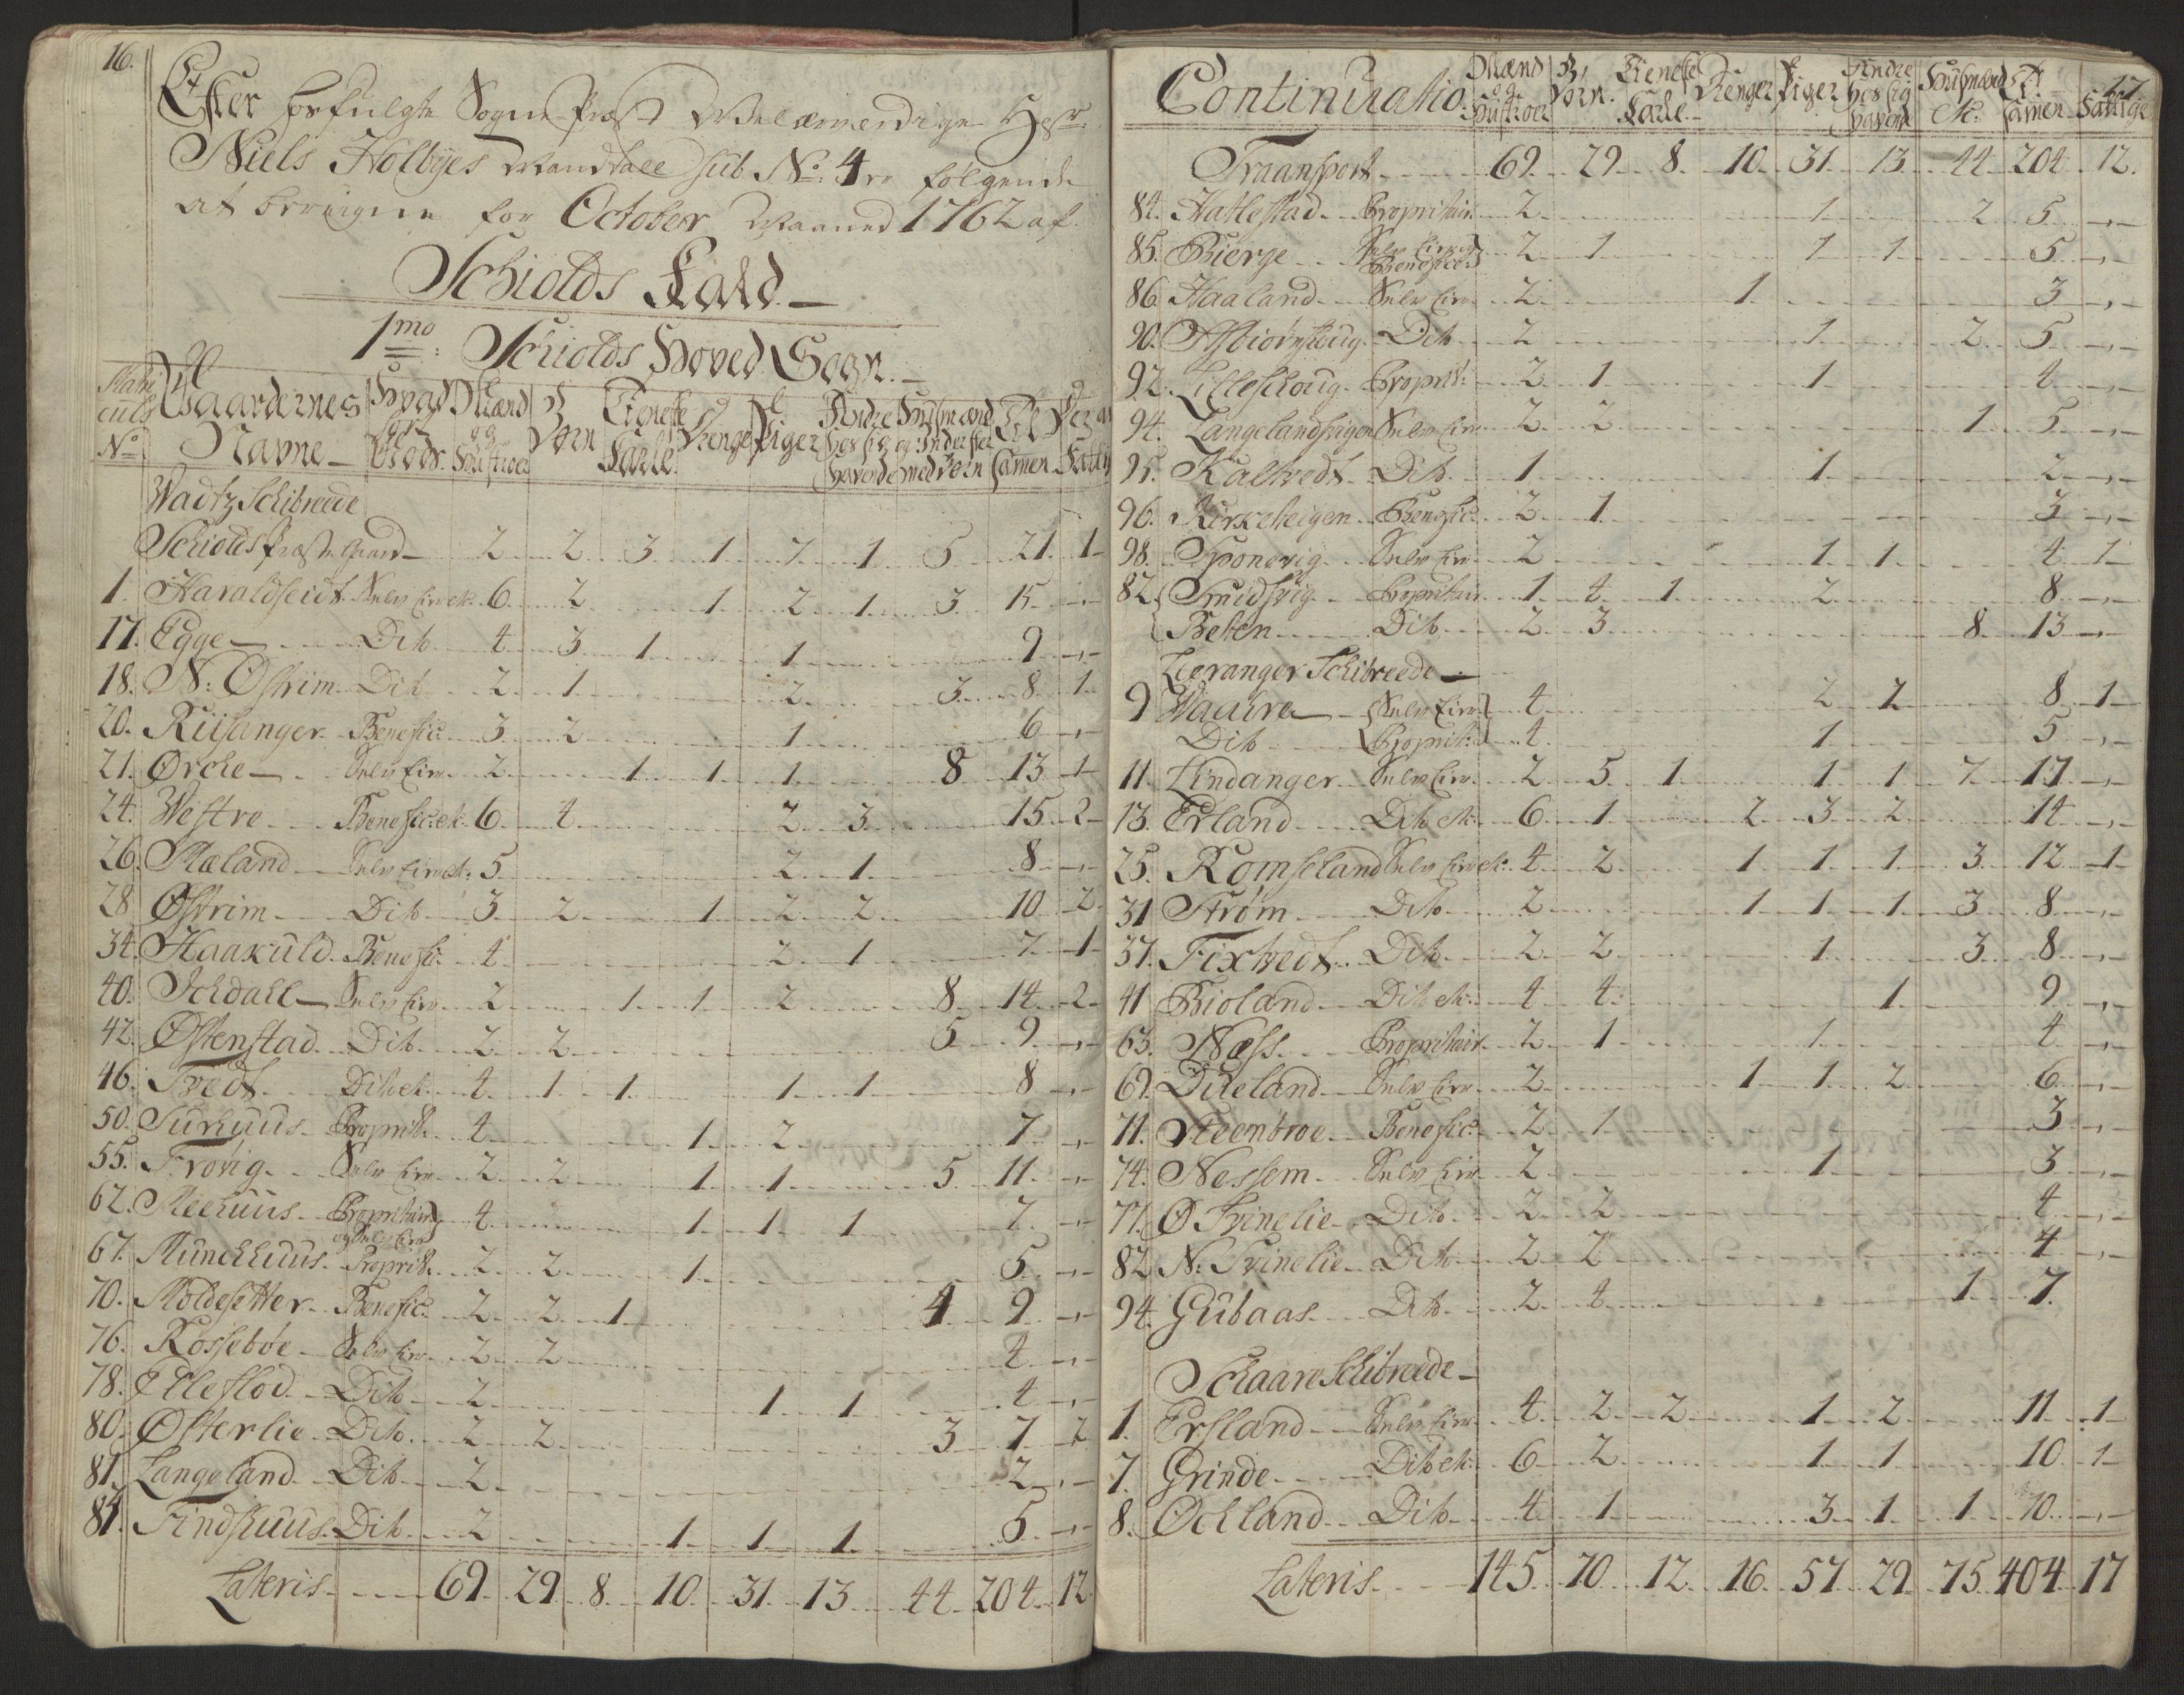 16.
Efter forfulgte Sogne Præst Welærværdige Herr
Niels Holbyes Mandtall sub No: 4ro følgende
at beregne for October Maaned 1762 af
Schiolds Kald
1mo: Schiolds Hoved Sogn.
Matriculs No Gaardernes Navne Hvad for Gods Mænd og Hustroer Børn Tieneste Karle Drenge Piger Andre hos sig havende Huusmænd og Inderster med Børn Til Samen Fattige
Wadtz Schibreede
Schiolds Præste Gaard 2 2 3 1 7 1 5 21 1
1. Haraldseidt Selv Eier etc: 6 2 1 2 1 3 15 -,-
17. Egge Dito 4 3 1 1 9 -,-
18. N: Østrim Dito 2 1 2 3 8 1
20. Riisanger Benefic: 3 2 1 6 -,-
21. Ørche Selv Eier 2 1 1 1 8 13 1
24. Westre Benefic: etc: 6 4 2 3 15 2
26. Mæland Selv Eier etc: 5 2 1 8 -,-
28 Østrim Dito 3 2 1 2 2 10 2
34. Haakuld Benefic: 4 2 1 7 1
40. Ichdall Selv Eier 2 1 1 2 8 14 2
42. Østenstad Dito 2 2 5 9 -,-
46. Tvedt Dito etc: 4 1 1 1 1 8 -,-
50. Surhuus Proprit: 4 1 2 7 -,-
55. Frøvig Selv Eier 2 2 1 1 5 11 -,-
62. Meehuus Propritair og Selv Eier 4 1 1 1 7 -,-
67. Munchhuus Proprit: 2 2 1 5 -,-
70. Moldesetter Benefic: 2 2 1 4 9 -,-
76. Rossebøe Selv Eier 2 2 4 -,-
78. Elleflod Dito 2 1 1 4 -,-
80. Østerlie Dito 2 2 3 7 2
81. Langeland Dito 2 2 -,-
87. Findshuus Dito 2 1 1 1 5 -,-
Lateris 69 29 8 10 31 13 44 204 12
17
Continuatio. Mænd og Hustroer Børn. Tieneste Karle Drenger Piger Andre hos sig havende Huusmænd etc: Til Samen Fattige
Transport 69 29 8 10 31 13 44 204 12.
84. Hatlestad Propritair 2 1 2 5 -,-
85. Bierge Selv Eier og Benefic: 2 1 1 1 5 -,-
86. Haaland Selv Eier 2 1 3 -,-
90. Asbiørnshoug Dito 2 1 2 5 -,-
92. Lilleschoug Proprit: 2 1 1 4 -,-
94. Langelandsvigen Selv Eier 2 2 1 5 -,-
95. Kaltvedt Dito 1 1 2 -,-
96. Kirkeheigen Benefic: 2 1 3 -,-
98. Sponevig Selv Eier 2 1 1 4 1
82 Smidsvig Propritair 1 4 1 2 8 -,-
Beten Dito 2 3 8 13 -,-
Leeranger Schibreede
9 Waaire Selv Eier 4 2 2 8 1
Dito Proprit: 4 1 5 -,-
11. Lindanger Selv Eier 2 5 1 1 1 7 17 -,-
13. Erland Dito etc: 6 1 2 3 2 14 -,-
25. Romseland Selv Eier etc: 4 2 1 1 1 3 12 1
31 Strøm Dito 2 1 1 1 3 8 -,-
37. Fixtvedt Dito 2 2 1 3 8 -,-
41 Bioland Dito etc: 4 4 1 9 -,-
63. Næss Propritair 2 1 1 4 -,-
69. Dueland Selv Eier 2 1 1 2 6 -,-
71. Steenbroe Benefic: 2 1 3 -,-
74. Nessem Selv Eier 2 1 3 -,-
77. Ø Svinelie Dito 2 2 4 -,-
82 N: Svinelie Dito 2 2 4 -,-
94. Gubaas Dito 2 4 1 7.
Schaare Schibreede
1. Ersland Selv Eier 4 2 2 1 2 11 1
7. Grinde Dito etc: 6 2 1 1 10 1
8. Øchland Dito 4 1 3 1 1 10 -,-
Lateris 145 70 12 16 57 29 75 404 17